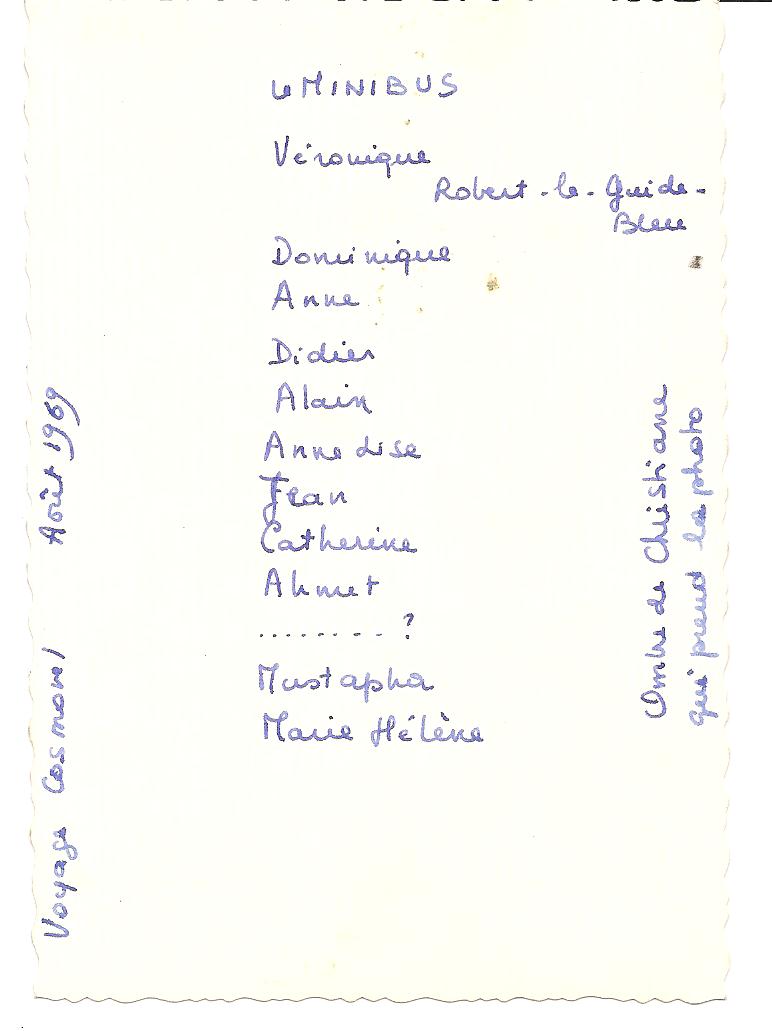 Le MINIBUS
Véronique
Robert-le-Guide-
Bleu
Dominique
Anne
Didier
Alain
Anne Lise
Jean
Catherine
Ahmet
........ ?
Mustapha
Marie Hélène
Voyage Cosmovel Août 1969
Ombre de Christiane
qui prend la photo